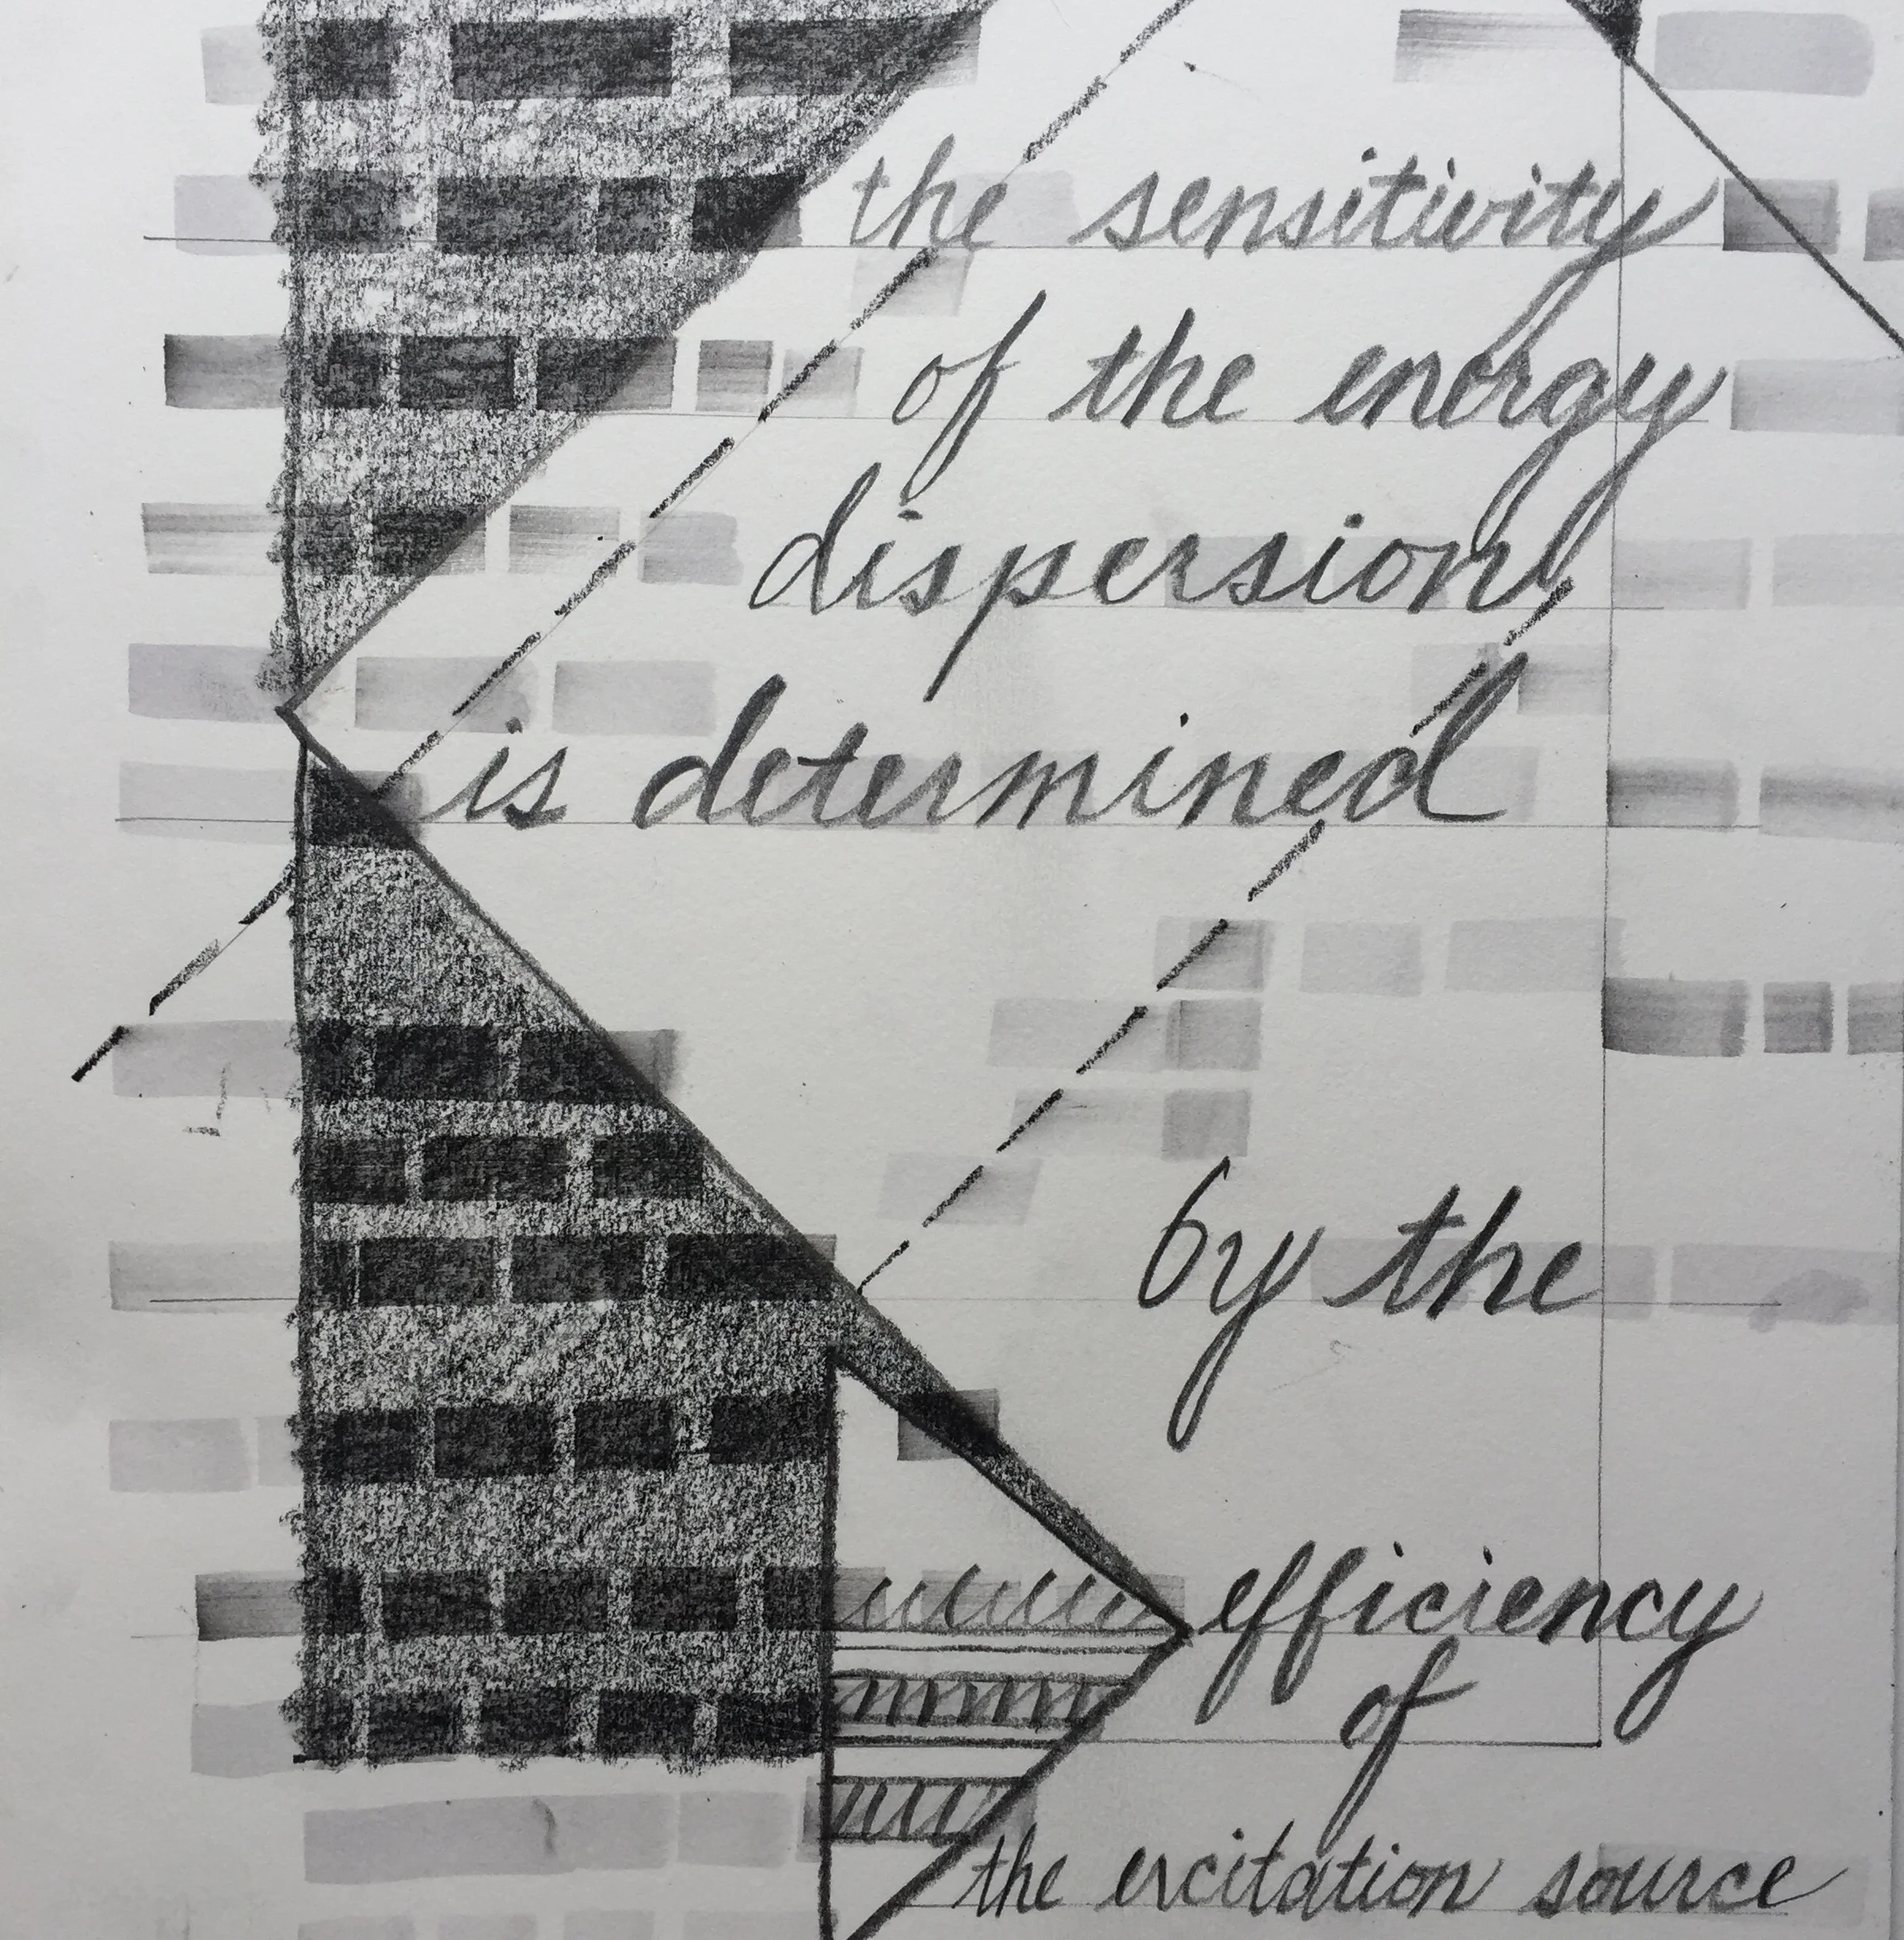 the sensitivity
of the energy
dispersion
is determined
by the
efficiency
of
the excitation source